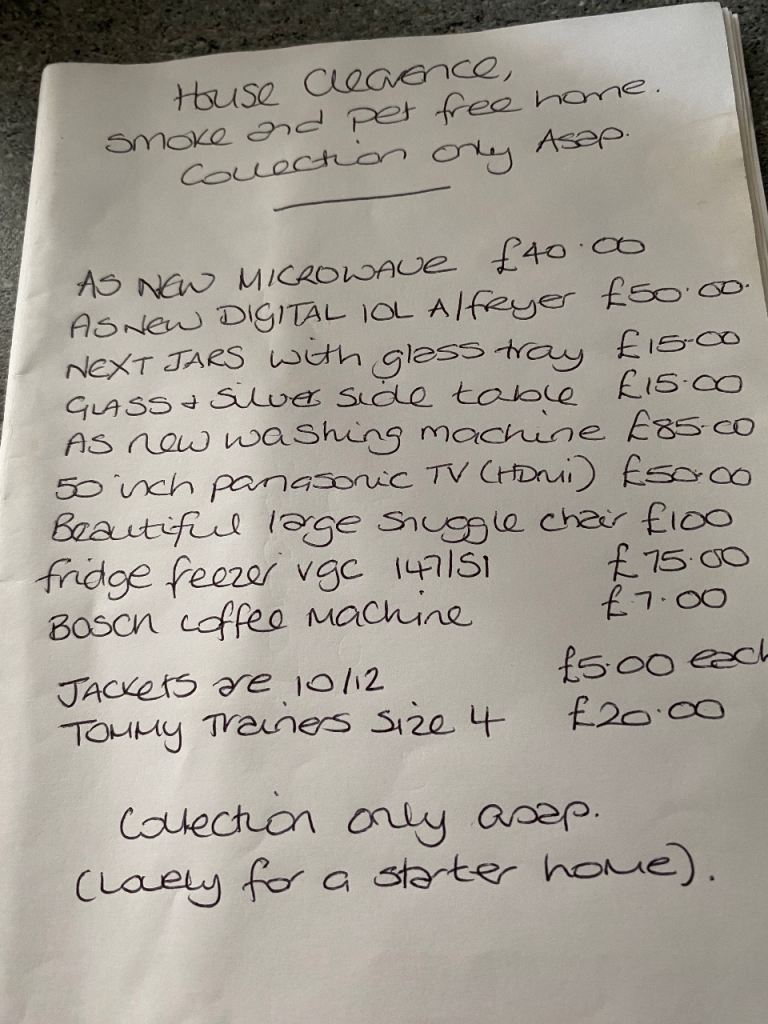 House Clearence,
smoke and pet free home.
Collection only Asap.
AS NEW MICROWAVE £40.00
AS NEW DIGITAL 10L A/fryer £50.00.
NEXT JARS with glass tray £15.00
GLASS + Silver side table £15.00
AS new washing machine £85.00
50 inch panasonic TV (HDmi) £50.00
Beautiful large snuggle chair £100
fridge freezer vgc 147/51 £75.00
BOSCH coffee machine £7.00
JACKETS are 10/12 £5.00 each
TOMMY Trainers size 4 £20.00
Collection only asap.
(Lovely for a starter home).